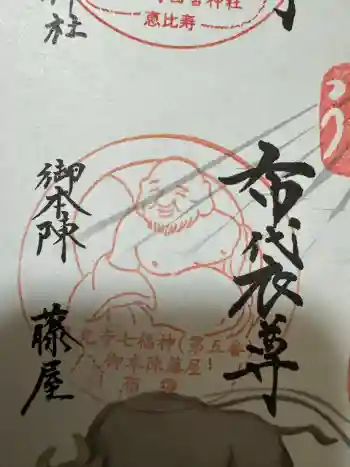 神社
恵比寿
布袋尊
御本陣
藤屋
七福神 第五番
御本陣藤屋